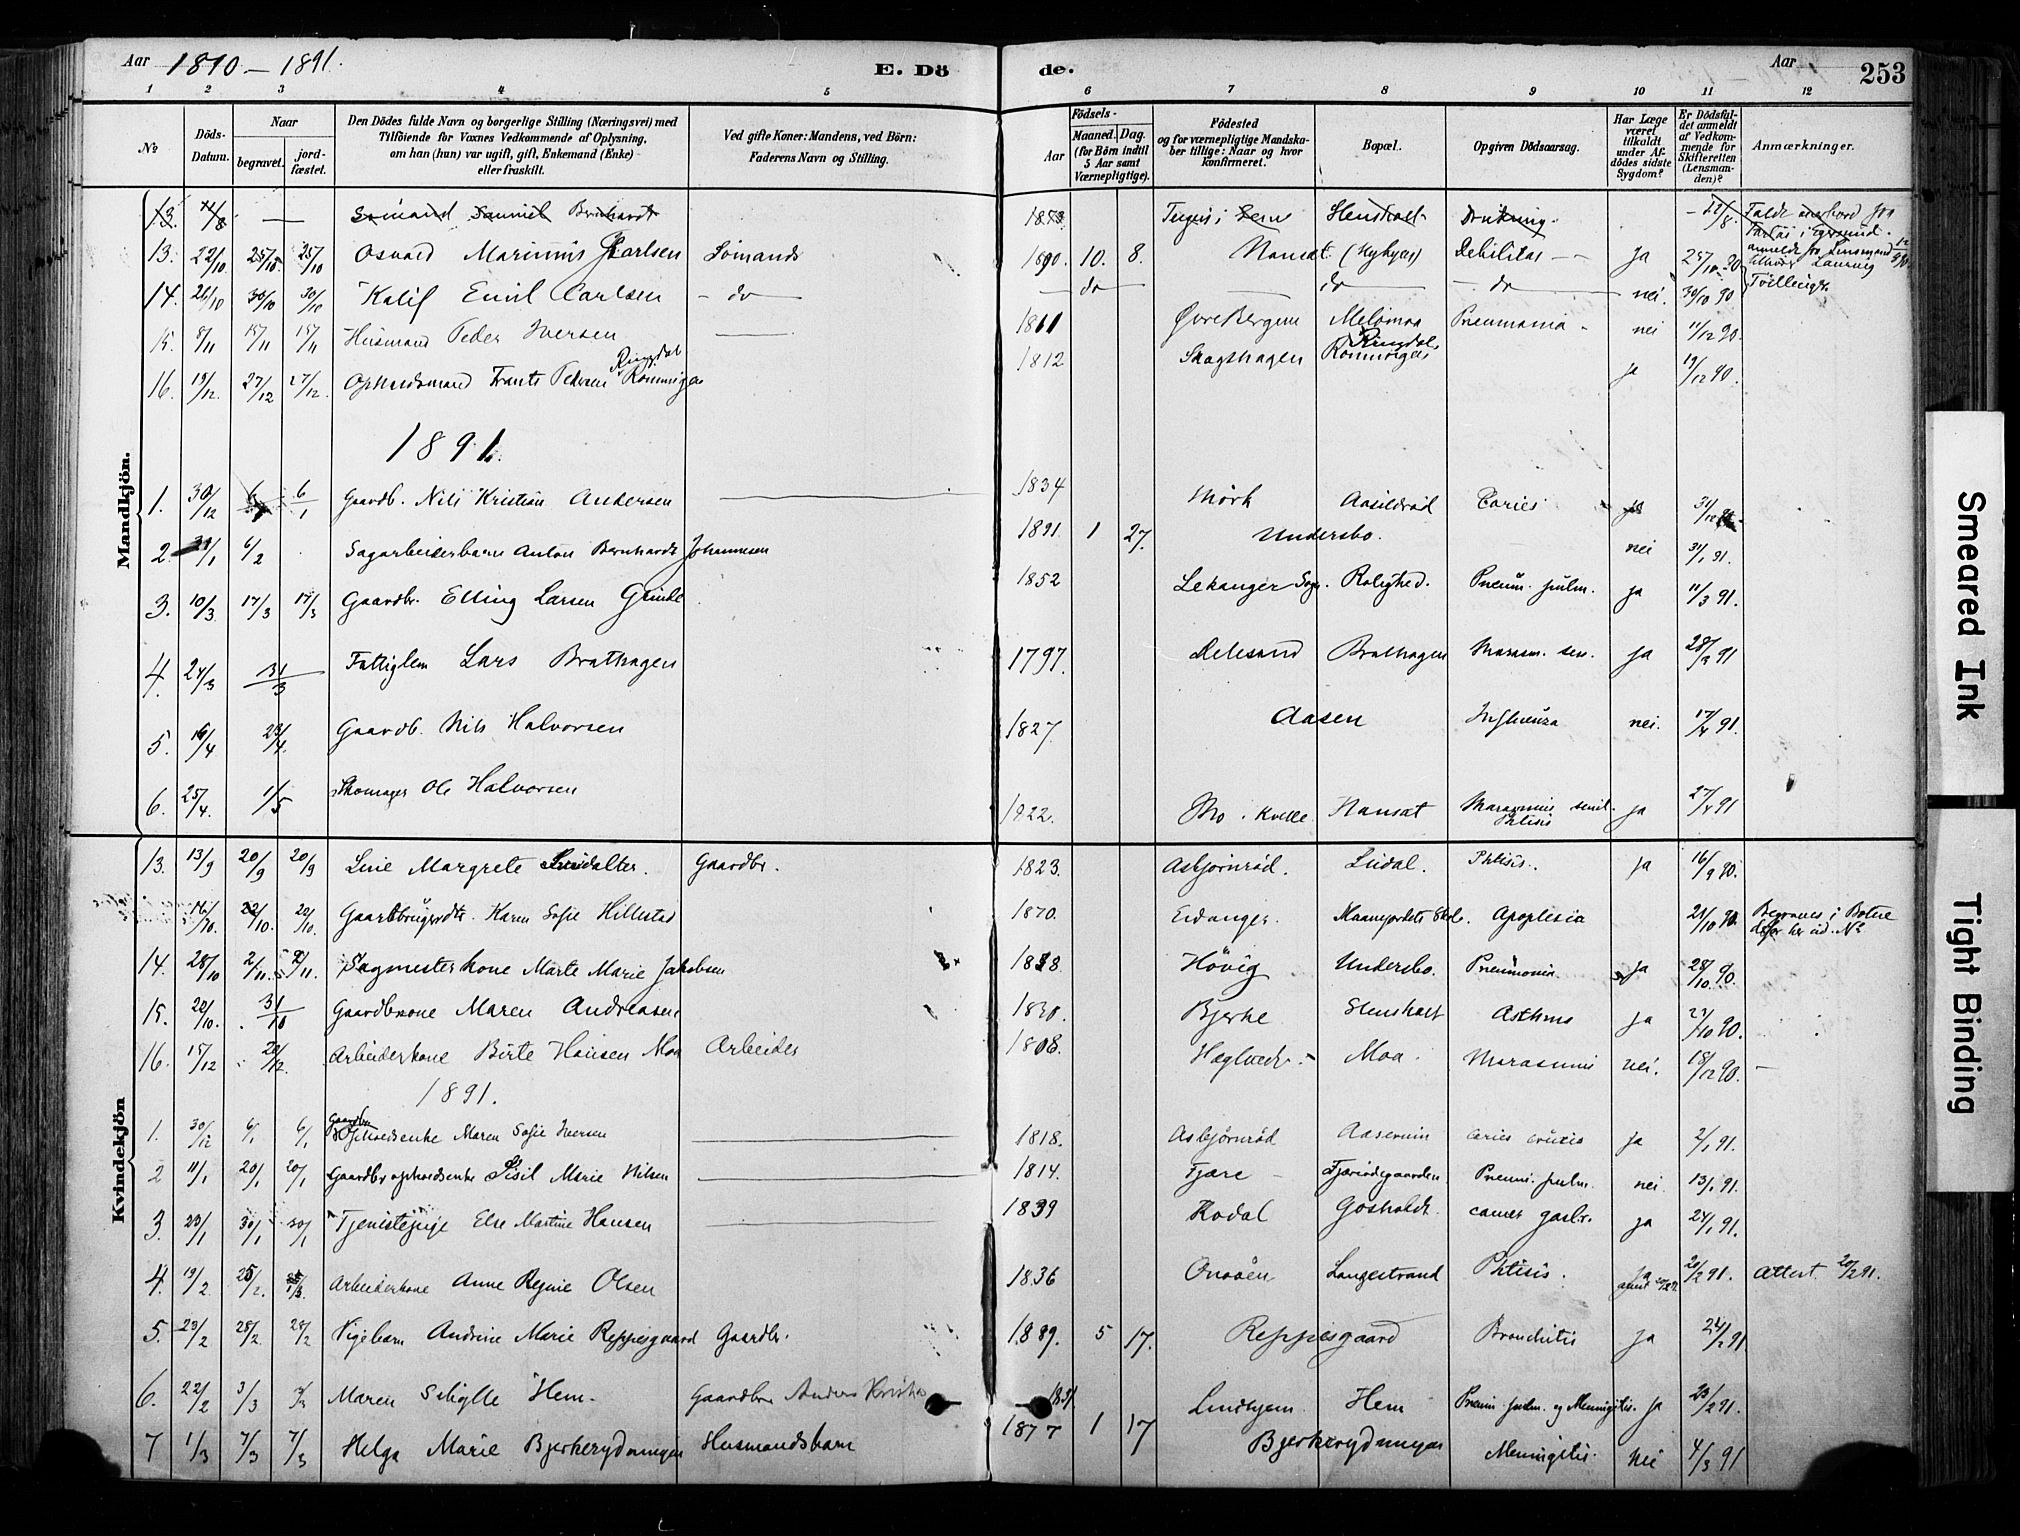 Aar 1890 – 1891. E. Dö de. Aar 253
1 2 3 4 5 6 7 8 9 10 11 12
No Döds-Datum. Naar begravet. jord-fæstet. Den Dödes fulde Navn og borgerlige Stilling (Næringsvei) med Tilföiende for Voxnes Vedkommende af Oplysning, om han (hun) var ugift, gift, Enkemand (Enke) eller fraskilt. Ved gifte Koner: Mandens, ved Börn: Faderens Navn og Stilling. Födsels- Aar Maaned. Dag. (for Börn indtil 5 Aar samt Værnepligtige). Födested og for værnepligtige Mandska-ber tillige: Naar og hvor konfirmeret. Bopæl. Opgiven Dödsaarsag. Har Læge været tilkaldt under Af-dödes sidste Sygdom? Er Dödsfal-det anmeldt af Vedkom-mende for Skifteretten (Lensman-den)? Anmærkninger.
Mandkjön.
13. Sömand Samuel Bernhardt 1873 Stensholt Drukning.
13. 22/10 25/10 25/10 Osvald Marinius Carlsen Sömands 1890. 10. 8. Nansæt Debilitas ja 25/10 90
14. 26/10 30/10 30/10 Kalif Emil Carlsen do do do do nei. 30/10 90 Tvillinger
15. 8/11 15/11 15/11 Husmand Peder Iversen 1811 Øvre Bergene Melömoa Pneumonia nei 11/12 90.
16. 19/12. 27/12 27/12. Opholdsmand Frants Pedersen Ringdal Rönningen 1812 Skogshagen Ringdal Rönningen ja 19/12 90.
1891.
1. 30/12 6/1 Gaardb. Nils Kristian Andersen 1834 Mörk Aasildröd Caries ja 31/12
2. 31/1 6/2 Sagarbeiderbarn Anton Bernhardt Johannesen 1891. 1 27. Undersbo. nei 31/1 91.
3. 10/3 17/3 17/3 Gaardbr. Elling Larsen Grinde 1852 Lekanger Sogn. Rolighed. Pneum. pulm. ja 11/3 91.
4. 24/3 31/3 Fattiglem Lars Brathagen 1797. Delesand Brathagen Marasm. sen. ja 28/3 91
5. 16/4 23/4. Gaardb. Nils Halvorsen 1827. Aasen Influenza nei. 17/4 91.
6. 25/4. 1/5 Skomager Ole Halvorsen 1822. Mo i Kvelle Nansæt Marasmus senil. Phtisis ja 27/4 91
Kvindekjön
13. 13/9 20/9 20/9 Line Margrete Lindalter. Gaardbr. 1823. Asbjörnröd. Lidal. Phtisis. ja 16/9 90.
16/10. 22/10. 20/10. Gaardbrugerdtr. Karen Sofie Hillestad 1870. Eidanger. Apoplexia 21/10 90. Begraves i Botne
14. 28/10 2/11. 2/11. Sagmesterkone Marte Marie Jakobsen 1838. Hövig Undersbo. Pneumonia ja 28/10 90.
15. 20/10. 31/10 Gaardbkone Maren Andreasen 1830. Bjerke Stensholt Asthma ja 23/10 90.
16. 15/12 20/12. Arbeiderkone Birte Hansen Moa Arbeider 1808. Moa. Marasmus nei. 18/12 90.
1891.
1. 30/12 6/1 6/1 Gaardbr Opholdsenke Maren Sofie Iversen 1818. Asbjörnröd Aaserum caries cruris ja 2/1 91.
2 11/1 20/1 20/1 Gaardbr opholdsenke Sisil Marie Nilsen 1814. Fjære Pneum. pulm. nei. 13/1 91.
3. 23/1 30/1 30/1 Tjenistepige Else Martine Hansen 1839 Kodal Gosholdt. cancer gastr. ja 24/1 91.
4. 19/2. 25/2. Arbeiderkone Anne Regine Olsen 1836 Onsöen Langestrand Phtisis. ja 20/2 91. Attest 20/2 91.
5. 23/2 28/2 28/2 Pigebarn Andrine Marie Reppesgaard Gaardbr. 1889. 5 17. Reppesgaard Bronchitis ja 24/2 91
6. 22/2 3/3 3/3 Maren Sibylle Hem. Gaardbr Anders Lindhjem Hem Pneum. pulm. og Meningitis. ja 23/2 91.
7 1/3 7/3 7/3 Helga Marie Bjerkerydningen Husmandsbarn 1877 1 17 Bjerkerydningen Meningitis. nei 4/3 91
Smeared Ink
Tight Binding